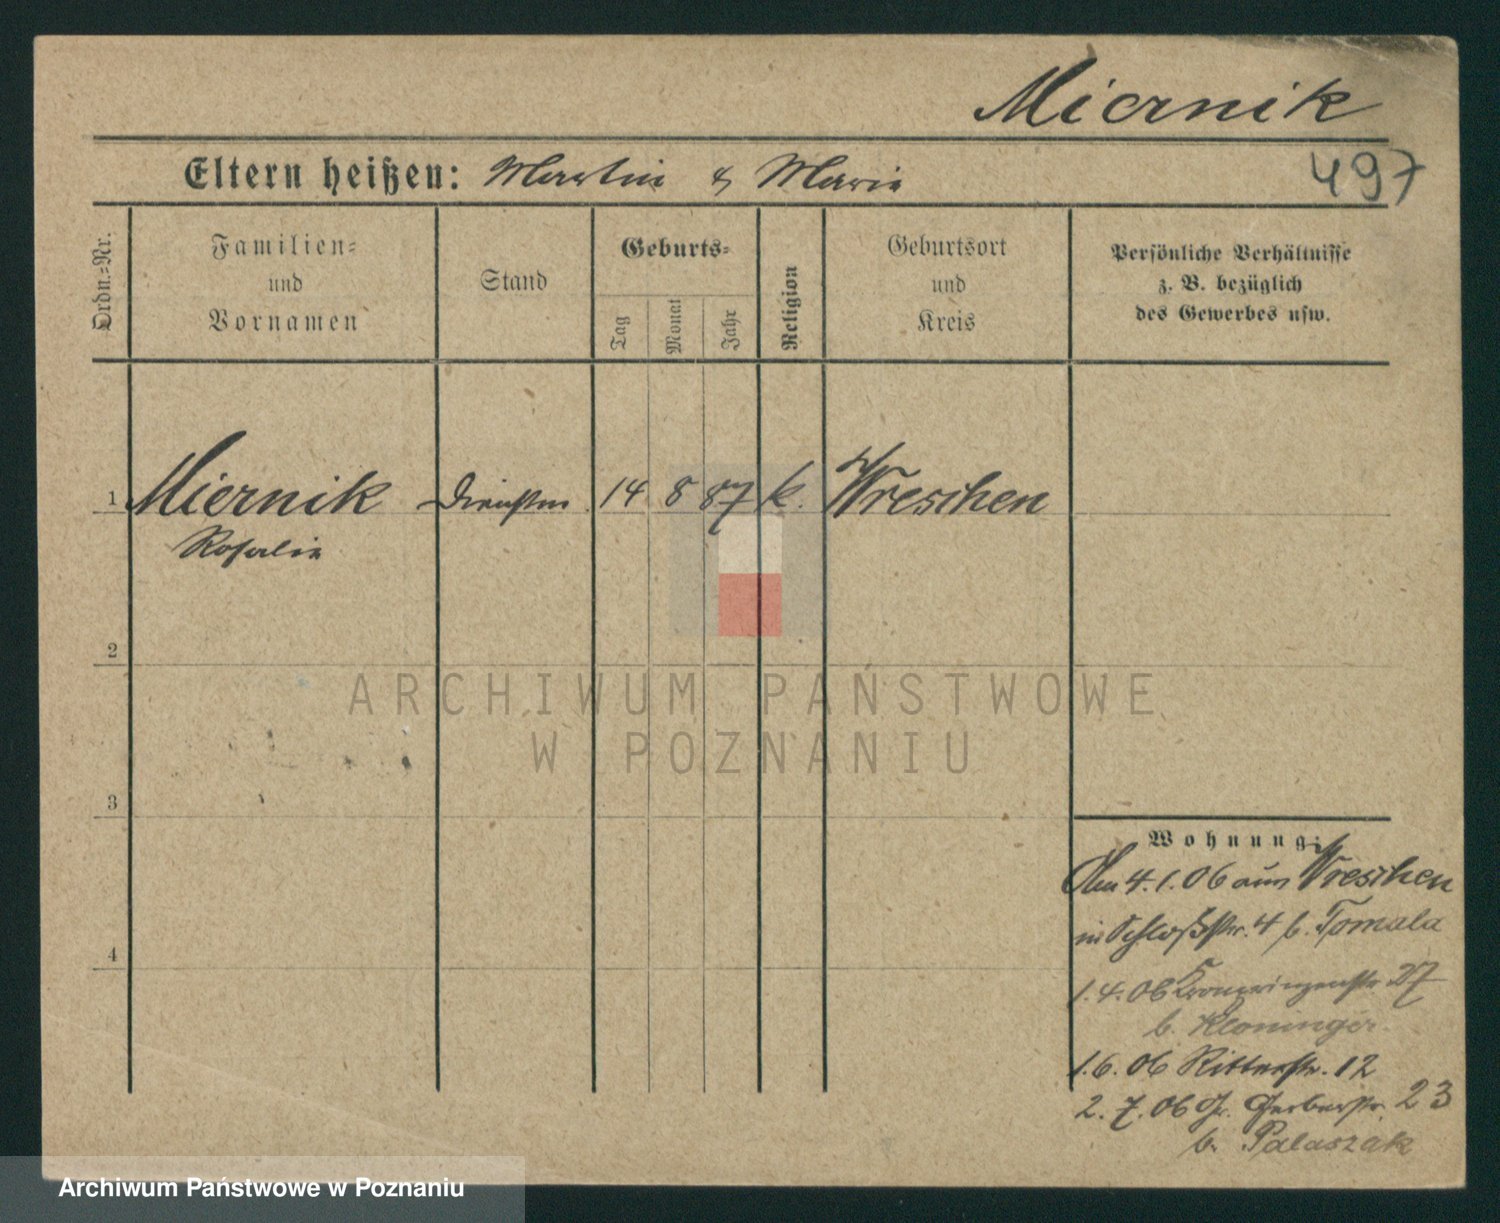 Miernik
Eltern heißen: Martin & Marie
497
Ordn.-Nr.
Familien-
und
Vornamen
Stand
Geburts-
Tag
Monat
Jahr
Religion
Geburtsort
und
Kreis
Persönliche Verhältnisse
z. B. bezüglich
des Gewerbes usw.
1 Miernik Dienstm. 14 8 87 k. Wreschen
Rosalie
2
3
4
Wohnung:
Am 4.1.06 aus Wreschen
in Schloßstr. 4 b. Tomala
1.4.06 Kronprinzenstr. 27
b. Kloninger
1.6.06 Ritterstr. 12
2.7.06 Gr. Gerberstr. 23
b. Palaszak
ARCHIWUM PAŃSTWOWE
W POZNANIU
Archiwum Państwowe w Poznaniu